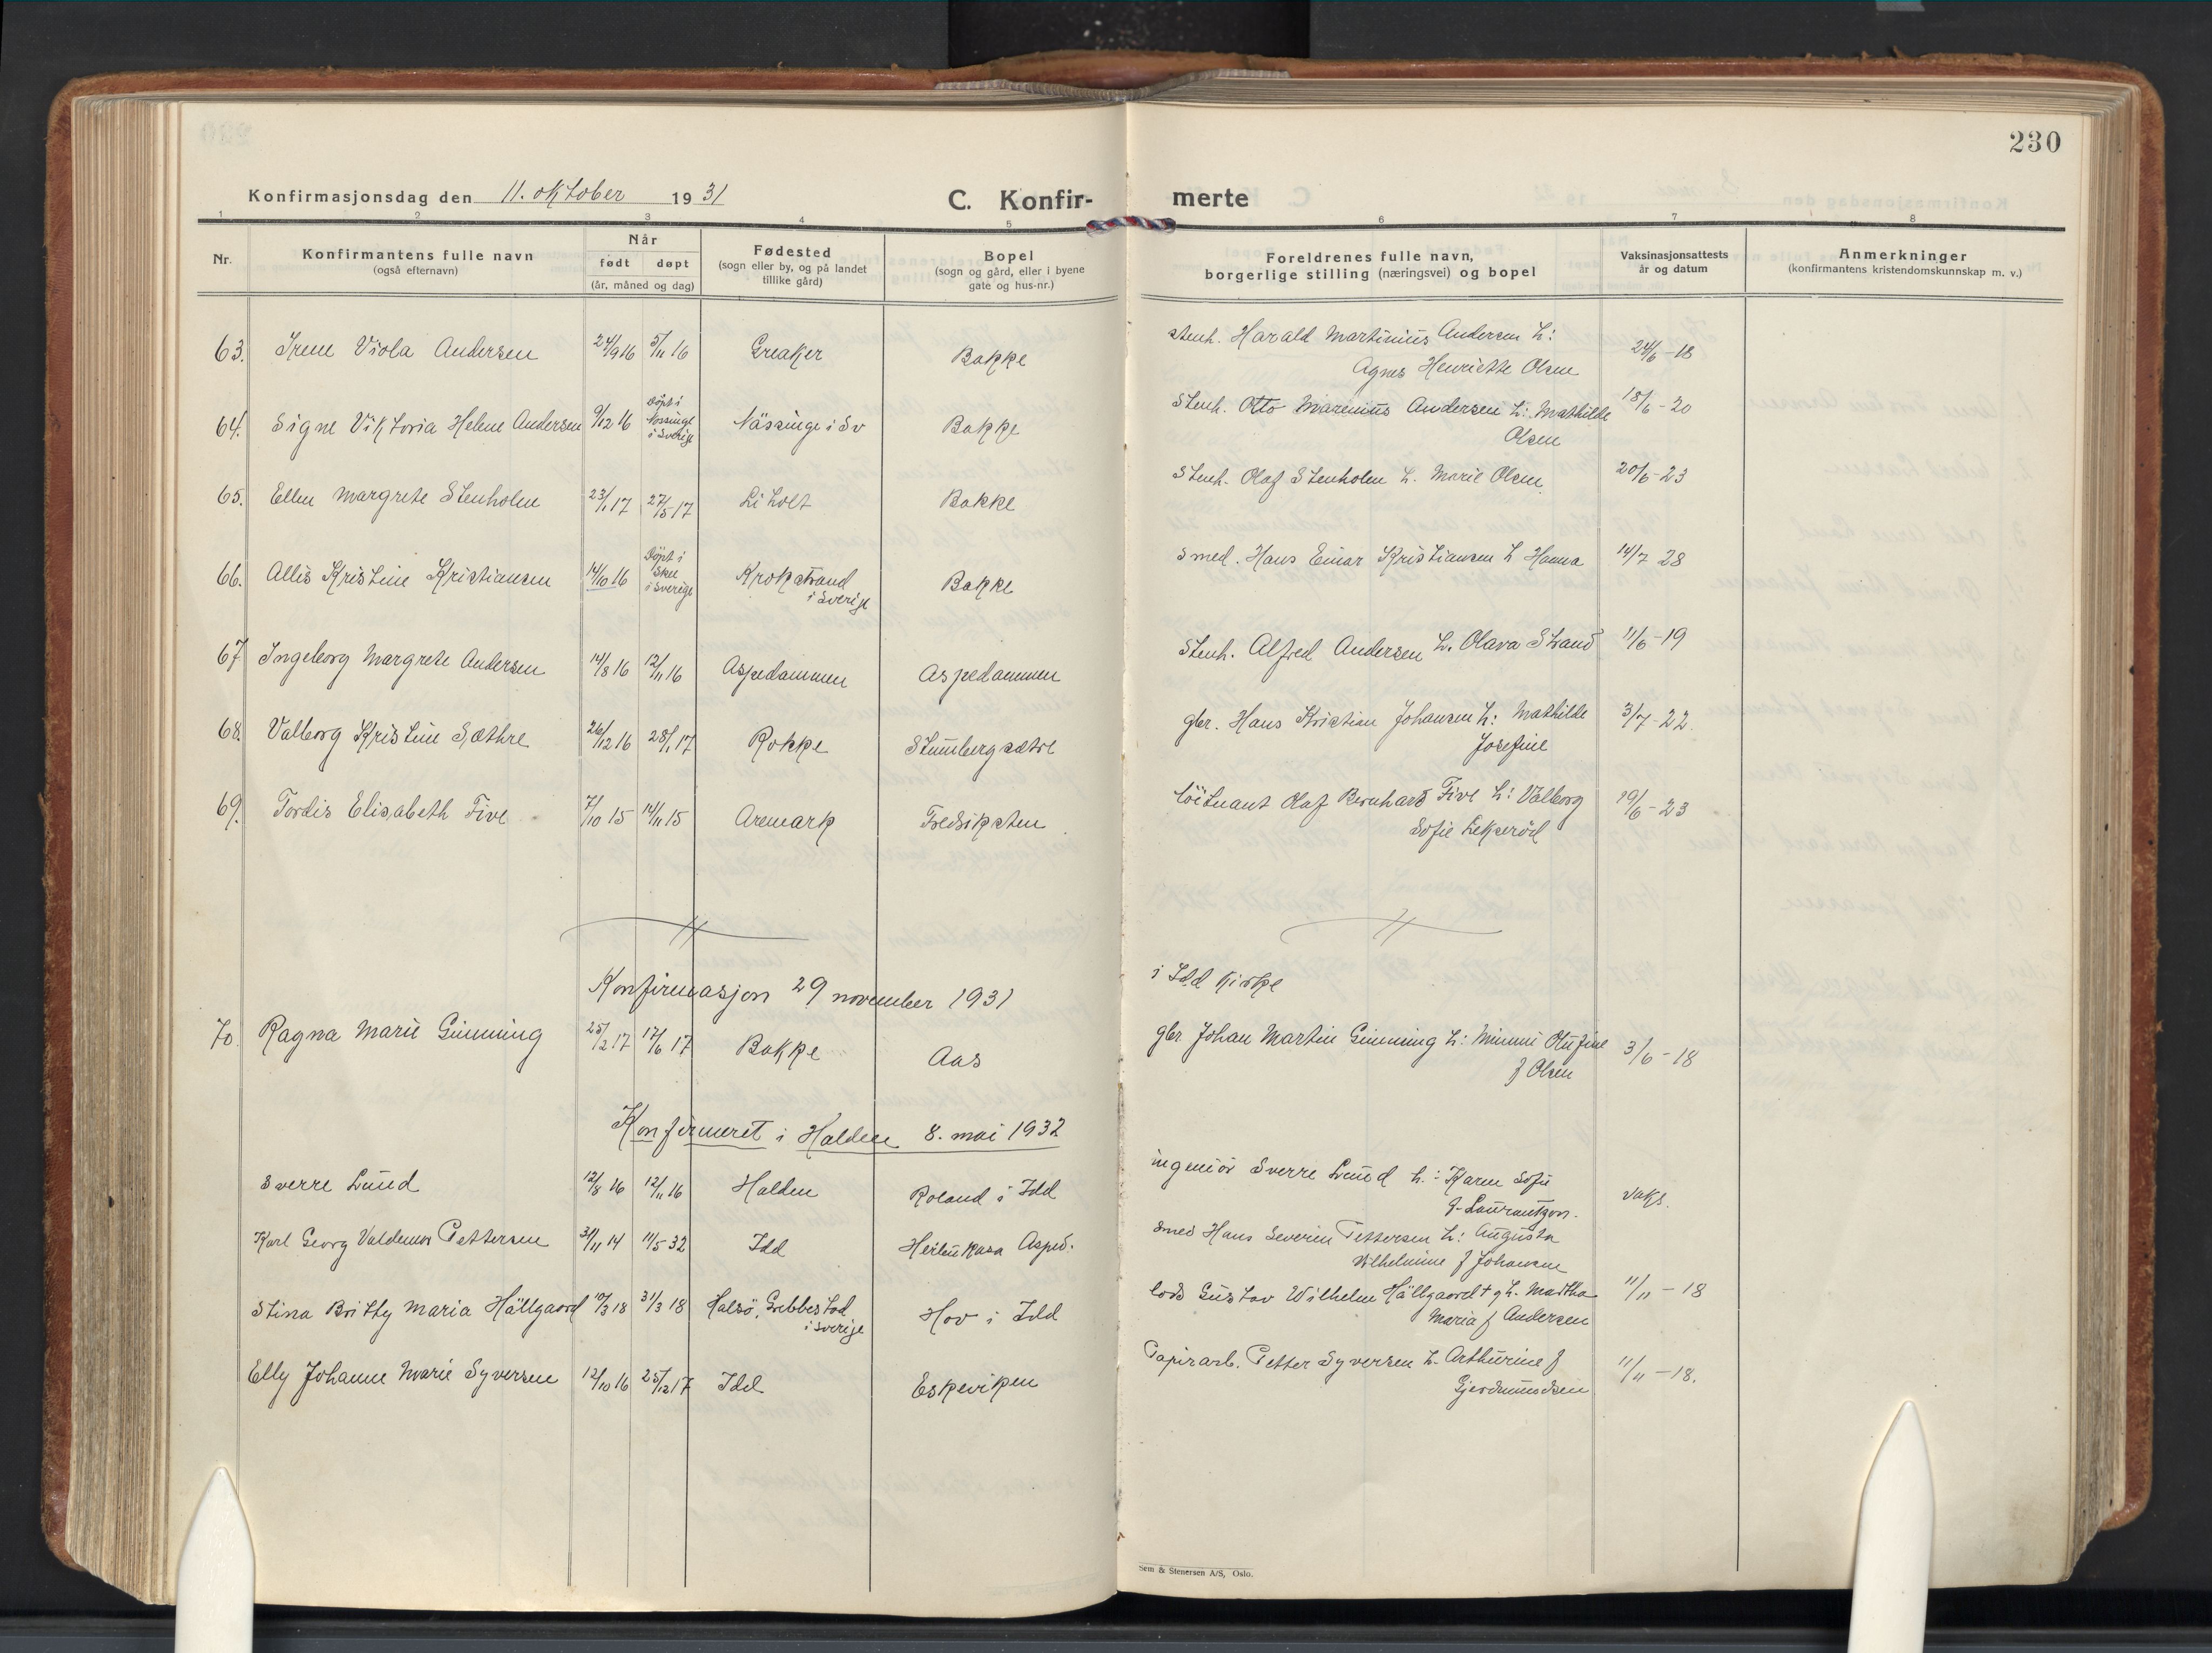 230
Konfirmasjonsdag den 11. oktober 1931
C. Konfir-
merte
1 2 3 4 5 6 7 8
Nr.
Konfirmantens fulle navn
(også efternavn)
Når
født døpt
(år, måned og dag)
Fødested
(sogn eller by, og på landet
tillike gård)
Bopel
(sogn og gård, eller i byene
gate og hus-nr.)
Foreldrenes fulle navn,
borgerlige stilling (næringsvei) og bopel
Vaksinasjonsattests
år og datum
Anmerkninger
(konfirmantens kristendomskunnskap m. v.)
63. Irene Viola Andersen 24/9 16 5/11 16 Greaker Bakke stenh. Harald Martinius Andersen h: 24/6-18
Agnes Henriette Olsen
64. Signe Viktoria Helene Andersen 9/12 16 Døpt i Nössinge i Sverige Nässinge i Sv Bakke Stenh. Otto Marenius Andersen h: Mathilde 18/6-20
Olsen
65. Ellen Margrete Stenholen 23/1 17 27/5-17 Liholt Bakke Stenh. Olaf Stenholen h. Marie Olsen 20/6-23
66. Allis Kristine Kristiansen 14/10 16 Döpt i Skee i Sverige Krokstrand i Sverige Bakke Smed. Hans Einar Kristiansen h Hanna 14/7 28
67 Ingeborg Margrete Andersen 14/8 16 12/11 16 Aspedammen Aspedammen Stenh. Alfred Andersen h. Olava Strand 11/6-19
68. Valborg Kristine Sæthre 26/12 16 28/1 17 Rokke Stumbergsætre gbr. Hans Kristian Johansen h: Mathilde 3/7-22
Josefine
69. Tordis Elisabeth Five 7/10 15 14/11 15 Aremark Fredriksten löitnant Olaf Bernhard Five h: Valborg 19/6-23
Sofie Lekseröd
Konfirmasjon 29 november 1931 i Idd kirke
70. Ragna Marie Gimming 25/2 17 17/6 17 Bakke Aas gbr Johan Martin Gimming h: Minni Olufine 3/6-18
f Olsen
Konfirmeret i Halden 8. mai 1932
Sverre Lund 12/8 16 12/11 16 Halden Roland i Idd ingeniör Sverre Lund h.: Karen Sofie vaks.
f. Laurantzon.
Karl Georg Valdemar Pettersen 31/11 14 11/5 32 Idd Asped. Smed Hans Severin Pettersen h: Augusta
Wilhelmine f Johansen
Stina Britty Maria Hällgaard 10/3 18 31/3 18 Halsö, Grebbestad i Sverige Hov i Idd lods Gustav Wilhelm Hällgaard + g h. Martha 11/11-18
Maria f Andersen
Elly Johanne Marie Syversen 12/10 16 25/12 17 Idd Eskeviken Papirarb. Petter Syversen h. Arthurine f 11/11-18.
Gjerdmundsen
Sem & Stenersen A/S, Oslo.